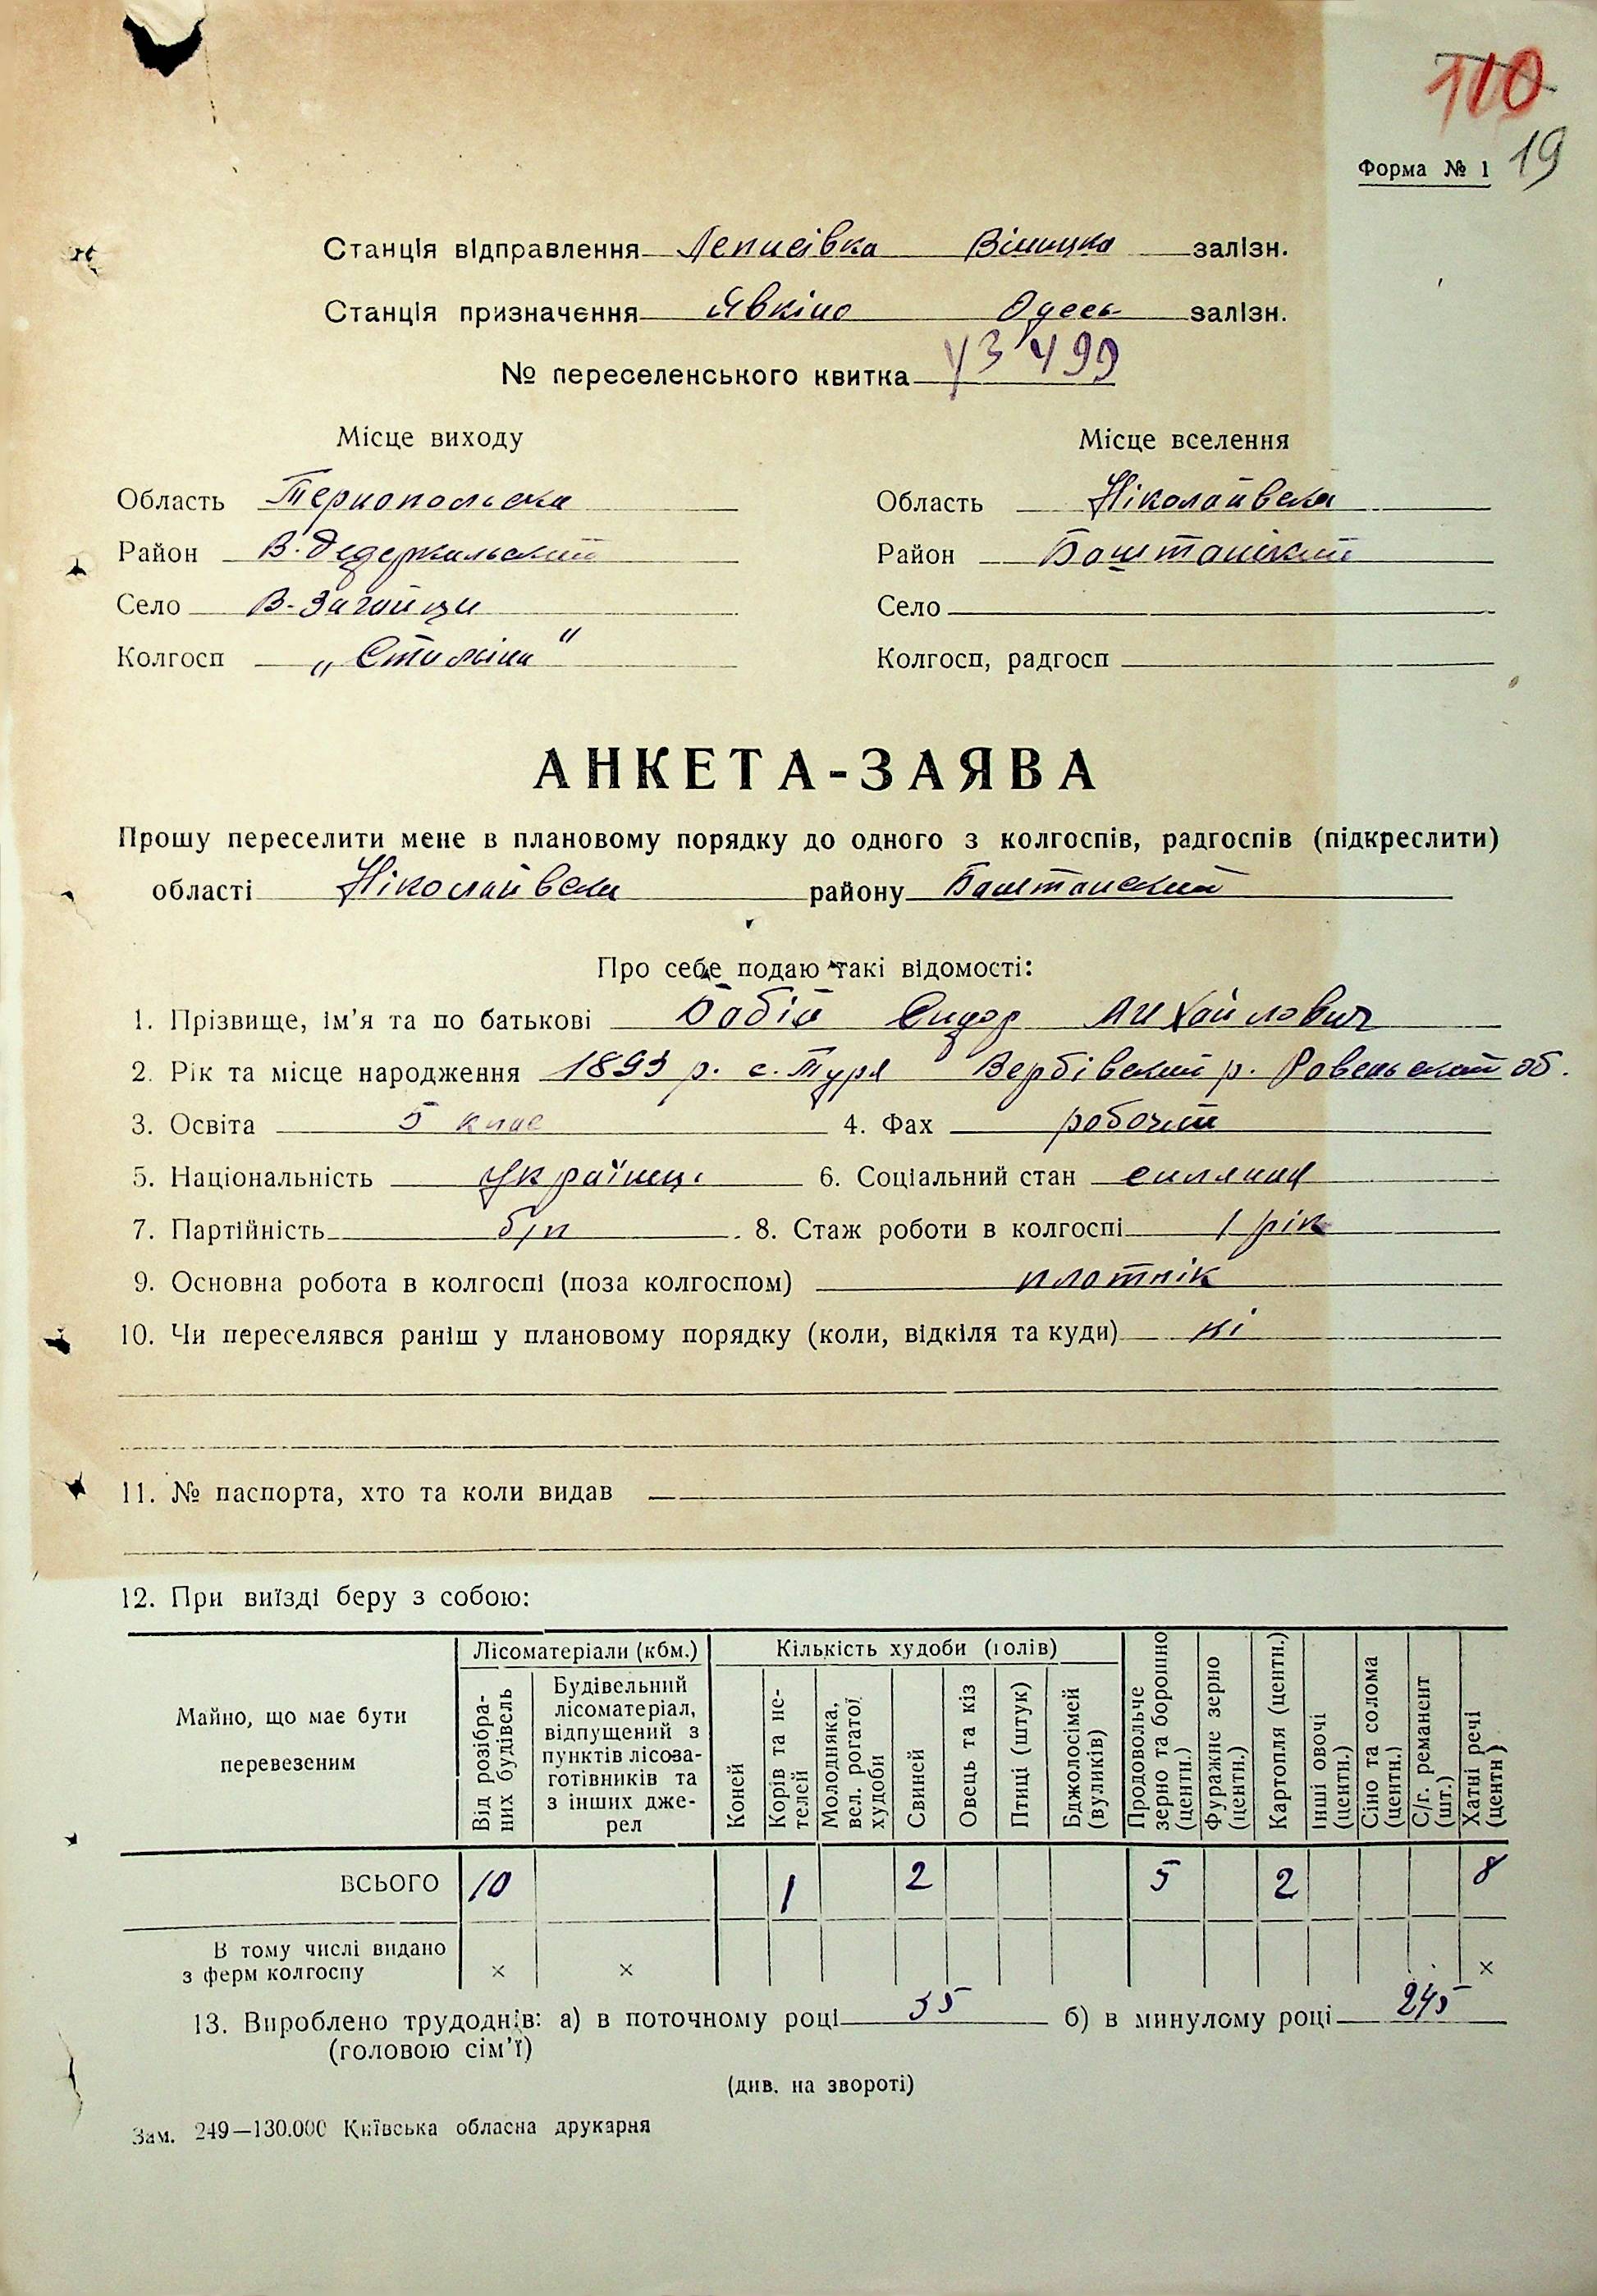 110
Форма № 1 19
Станція відправлення Леписівка Вінницка залізн.
Станція призначення Явкіно Одесь залізн.
№ переселенського квитка 43499
Місце виходу Місце вселення
Область Тернопольска Область Ніколаївска
Район В.Дедеркальський Район Баштанський
Село В-Загайци Село
Колгосп „Сталіна" Колгосп, радгосп
АНКЕТА-ЗАЯВА
Прошу переселити мене в плановому порядку до одного з колгоспів, радгоспів (підкреслити)
області Ніколайвска району Баштанский
Про себе подаю такі відомості:
1. Прізвище, ім’я та по батькові Бабій Сидор Михайлович
2. Рік та місце народження 1893 р. с. Туря Вербівский р. Ровеньскот об.
3. Освіта 5 клас 4. Фах робочий
5. Національність Українец. 6. Соціальний стан силянин
7. Партійність б/п 8. Стаж роботи в колгоспі 1 рік
9. Основна робота в колгоспі (поза колгоспом) плотнік
10. Чи переселявся раніш у плановому порядку (коли, відкіля та куди) ні
11. № паспорта, хто та коли видав
12. При виїзді беру з собою:
Майно, що має бути перевезеним
Лісоматеріали (кбм.) Кількість худоби (голів)
Від розібраних будівель
Будівельний лісоматеріал, відпущений з пунктів лісозаготівників та з інших джерел
Коней
Корів та нетелей
Молодняка, вел. рогатої худоби
Свиней
Овець та кіз
Птиці (штук)
Бджолосімей (вуликів)
Продовольче зерно та борошно (центн.)
Фуражне зерно (центн.)
Картопля (центн.)
Інші овочі (центн.)
Сіно та солома (центн.)
С/г. реманент (шт.)
Хатні речі (центн)
ВСЬОГО 10 1 2 5 2 8
В тому числі видано
з ферм колгоспу × × ×
13. Вироблено трудоднів: а) в поточному році 35 б) в минулому році 245
(головою сім’ї)
(див. на звороті)
Зам. 249—130.000 Київська обласна друкарня